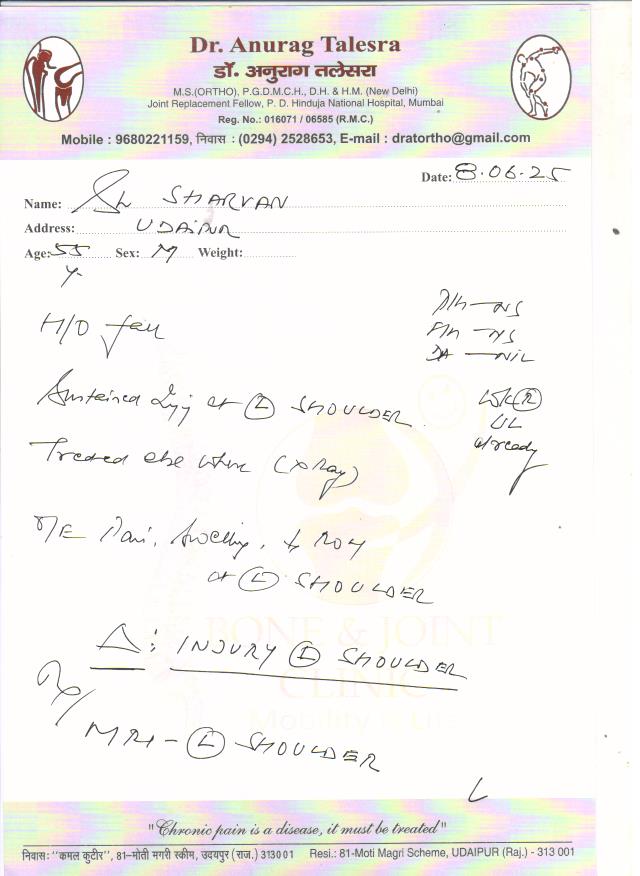 Dr. Anurag Talesra
डॉ. अनुराग तलेसरा
M.S.(ORTHO), P.G.D.M.C.H., D.H. & H.M. (New Delhi)
Joint Replacement Fellow, P. D. Hinduja National Hospital, Mumbai
Reg. No.: 016071 / 06585 (R.M.C.)
Mobile : 9680221159, निवास : (0294) 2528653, E-mail : dratortho@gmail.com
Date: 8.06.25
Name: Sh SHARVAN
Address: UDAIPUR
Age: 55 Sex: M Weight:
Y
H/O fall
DA — NIL
Sustained Inj at (L) SHOULDER
(R)
UL
already
Treated else where (X Ray)
O/E Pain, Swelling, ↓ ROM
at (L) SHOULDER
BONE & JOINT
CLINIC
Mobility is Life
Δ: INJURY (L) SHOULDER
Rx
MRI - (L) SHOULDER
"Chronic pain is a disease, it must be treated"
निवास: "कमल कुटीर", 81-मोती मगरी स्कीम, उदयपुर (राज.) 313001 Resi.: 81-Moti Magri Scheme, UDAIPUR (Raj.) - 313 001